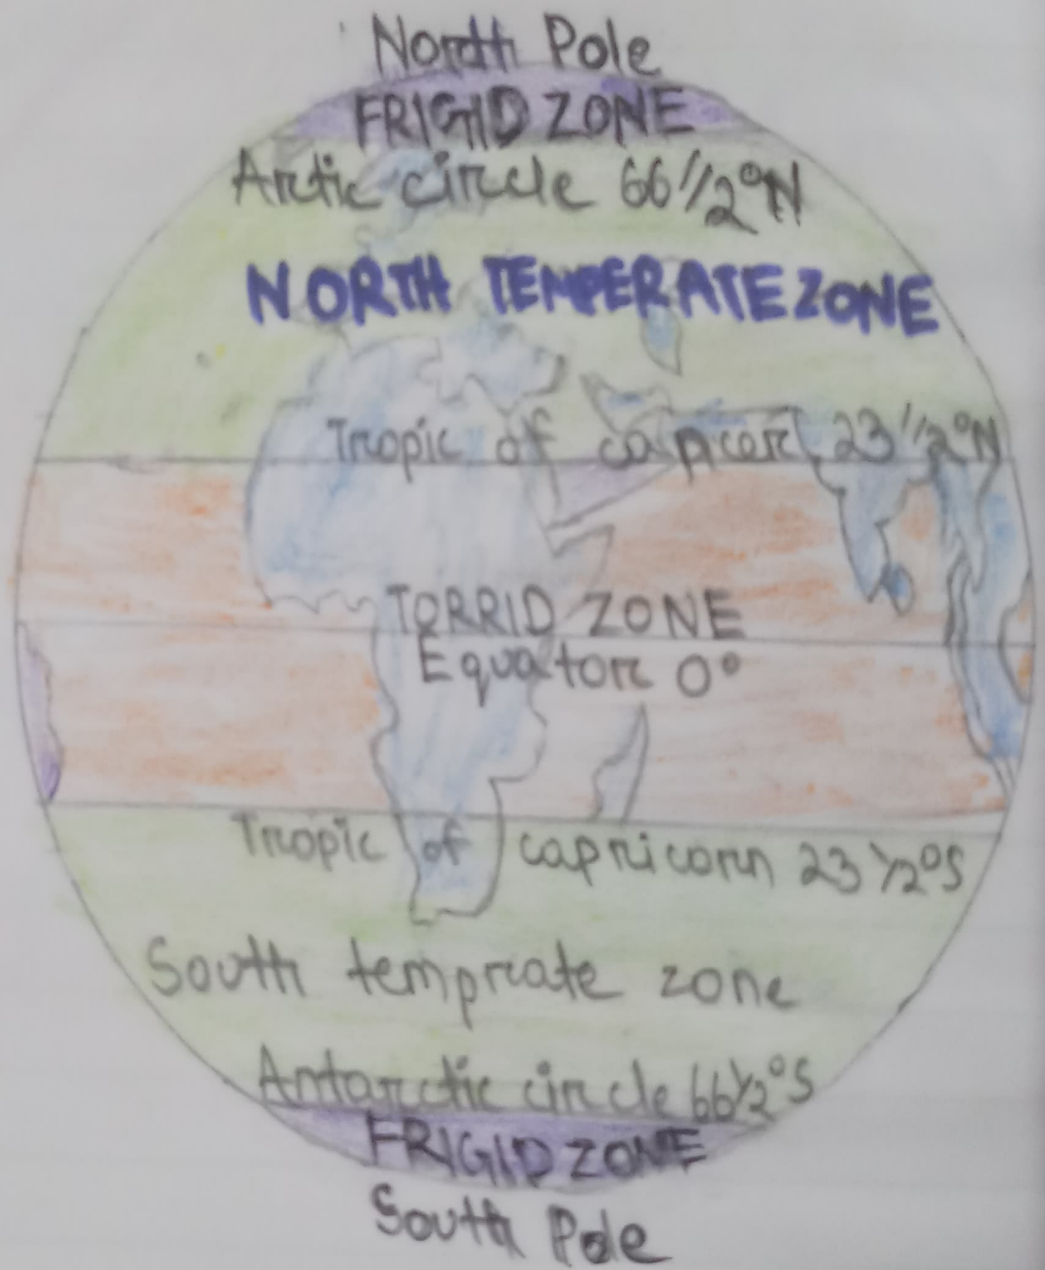 North Pole
FRIGID ZONE
Arctic circle 66 1/2°N
NORTH TEMPERATE ZONE
Tropic of capricorn 23 1/2°N
TORRID ZONE
Equator 0°
Tropic of capricorn 23 1/2°S
South temprate zone
Antarctic circle 66 1/2°S
FRIGID ZONE
South Pole